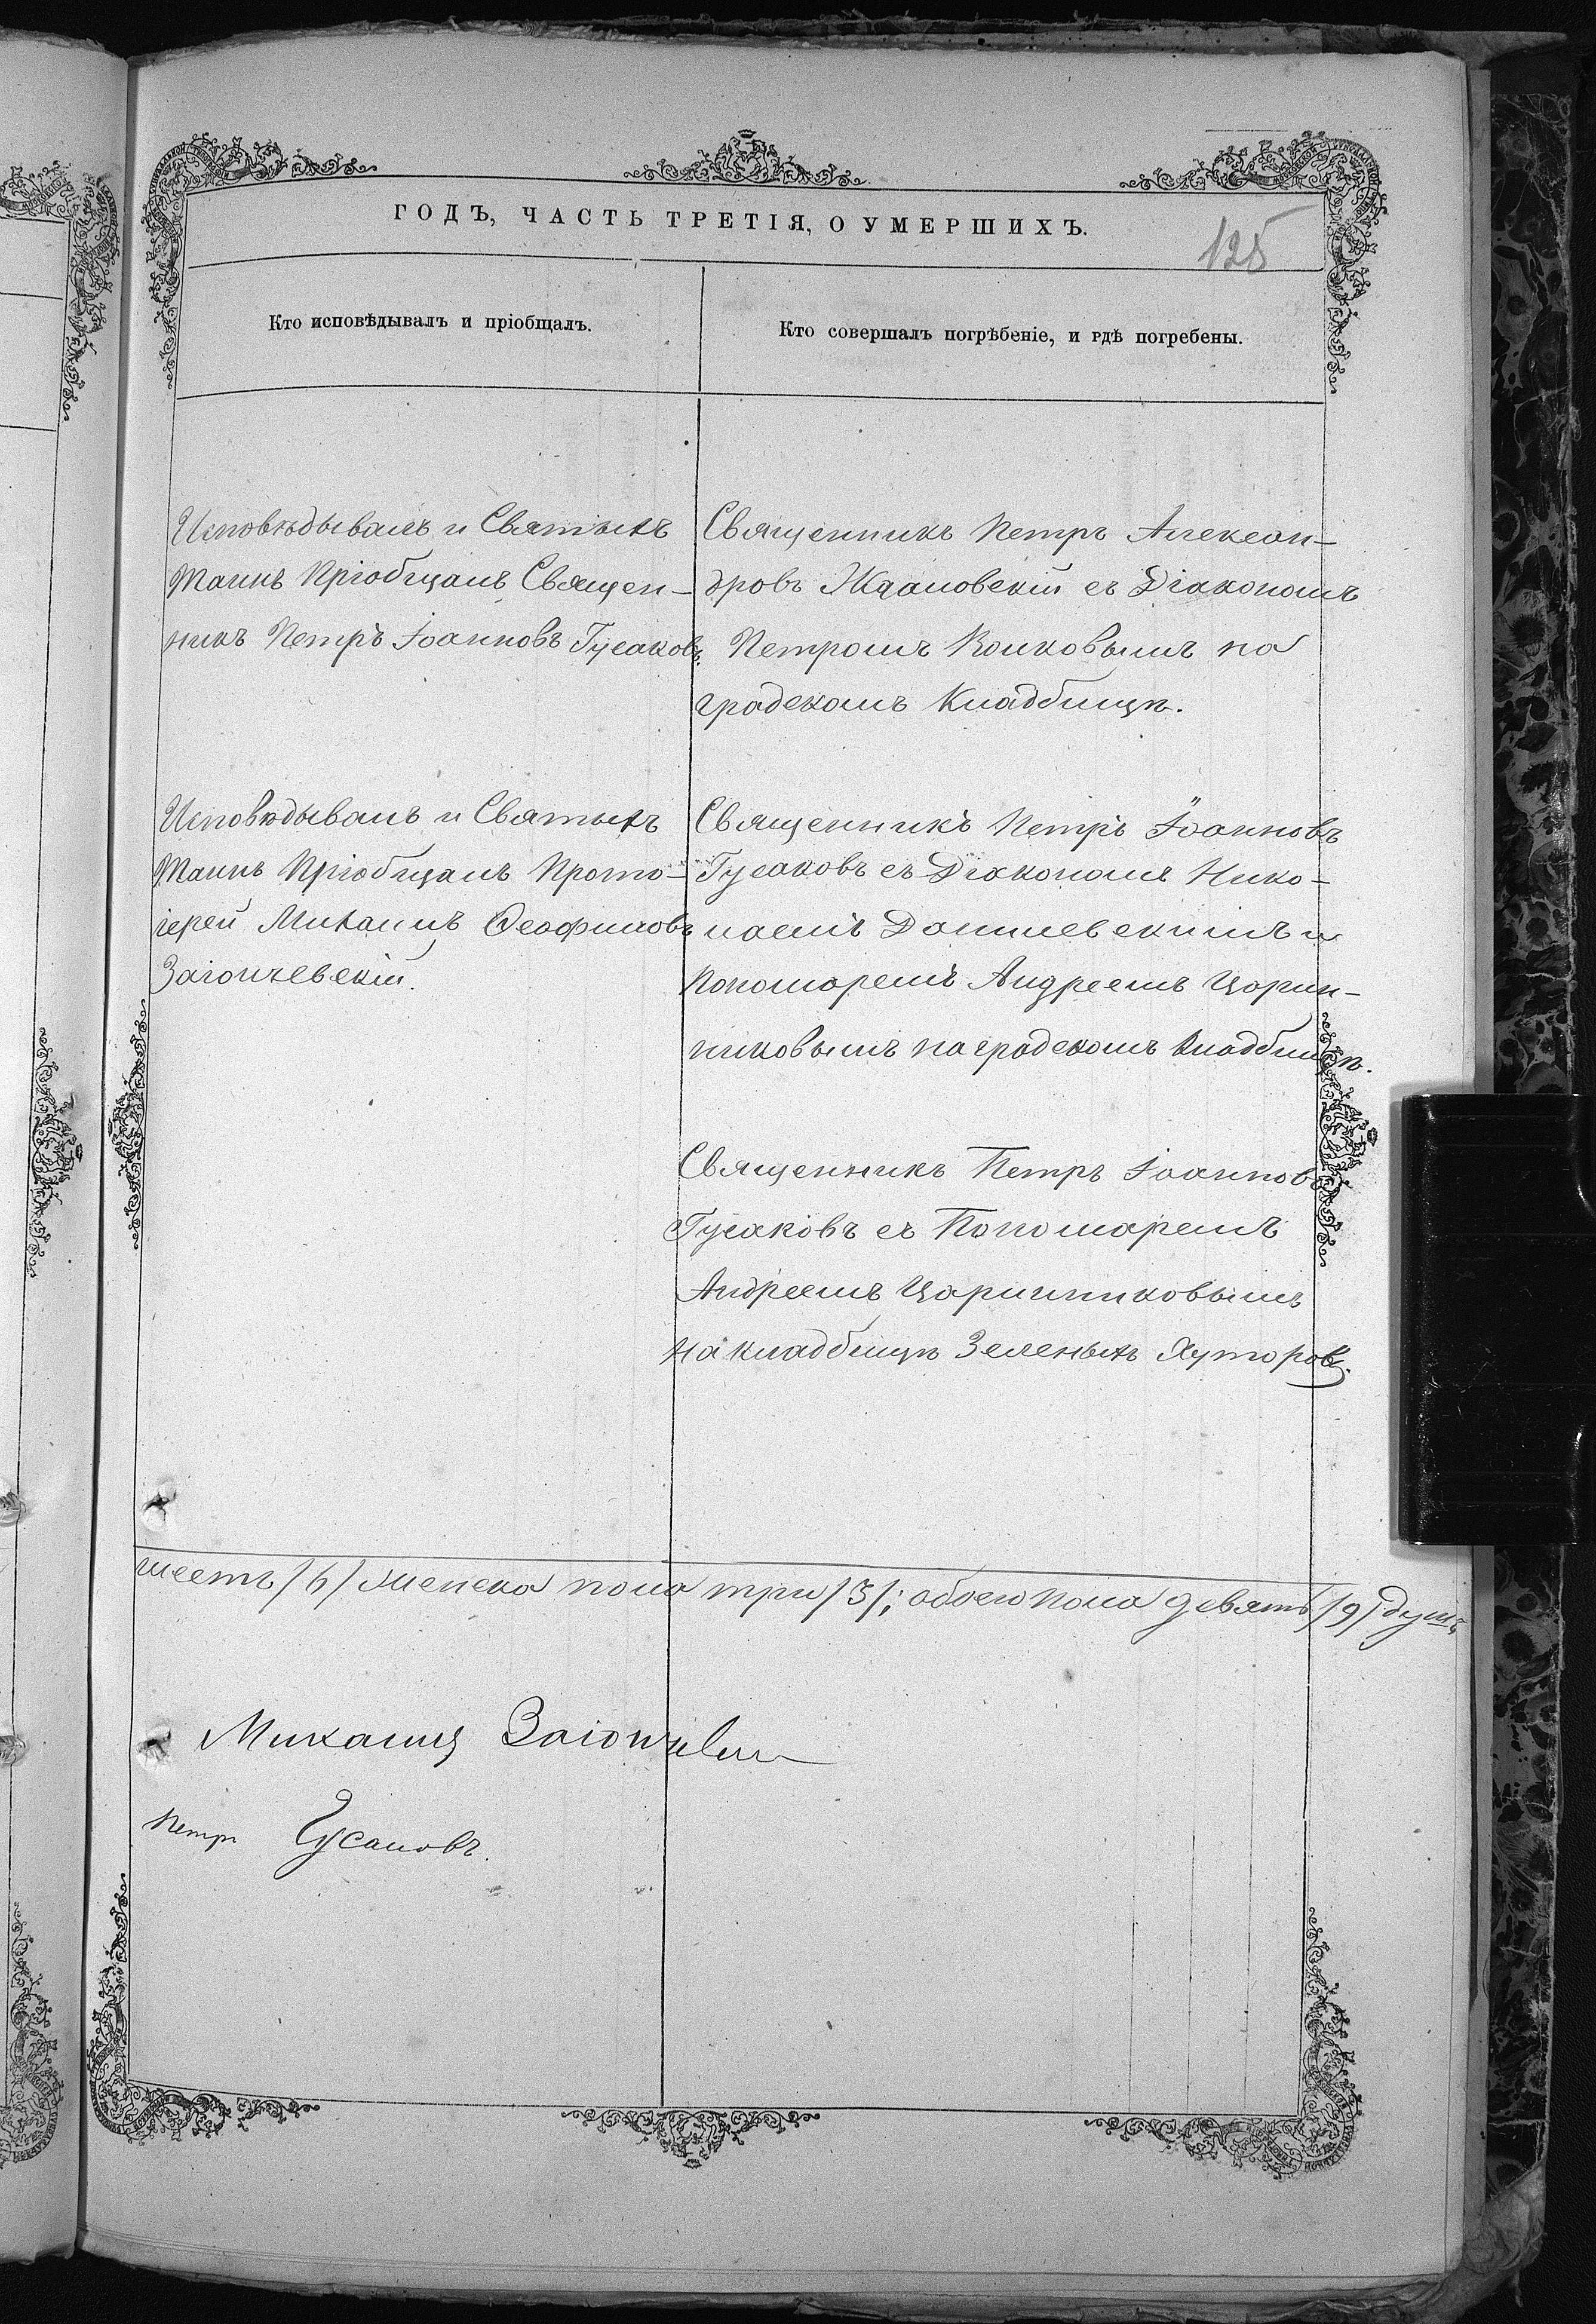 ГОДЪ, ЧАСТЬ ТРЕТІЯ, О УМЕРШИХЪ.
125
Кто исповѣдывалъ и пріобщалъ.
Кто совершалъ погрѣбеніе, и гдѣ погребены.
Исповѣдывалъ и Святыхъ
Таинъ Пріобщалъ Священ-
никъ Петръ Іоанновъ Гусаковъ.
Священникъ Петръ Алексан-
дровъ Ждановскій съ Діакономъ
Петромъ Волковымъ на
градскомъ Кладбищѣ.
Исповѣдывалъ и Святыхъ
Таинъ Пріобщалъ Прото-
іерей Михаилъ Ѳеофиловъ
Загончевскій.
Священникъ Петръ Іоанновъ
Гусаковъ съ Діакономъ Нико-
лаемъ Данилевскимъ и
Пономаремъ Андреемъ Царин-
никовымъ на градскомъ Кладбищѣ.
Священникъ Петръ Іоанновъ
Гусаковъ съ Пономаремъ
Андреемъ Царинниковымъ
на кладбищѣ Зеленыхъ Хуторовъ.
шесть /6/ женска пола три /3/; обоего пола девять /9/ душъ
Михаилъ
Петръ Гусаковъ.